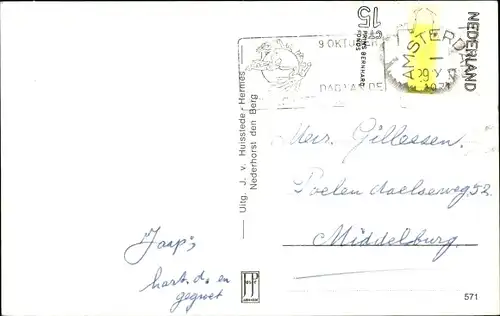 NEDERLAND
15
ct
PRINS BERNHARD
FONDS
9 OKTOBER
AMSTERDAM
Uitg. J. v. Huisstede - Hermes
Nederhorst den Berg
Meir. Gillessen.
52
Middelburg.
"Jaap",
hart. d. en
gegroet
571